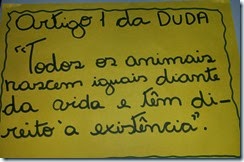 Artigo 1 da DUDA
"Todos os animais
nascem iguais diante
da vida e têm di-
reito à existência".